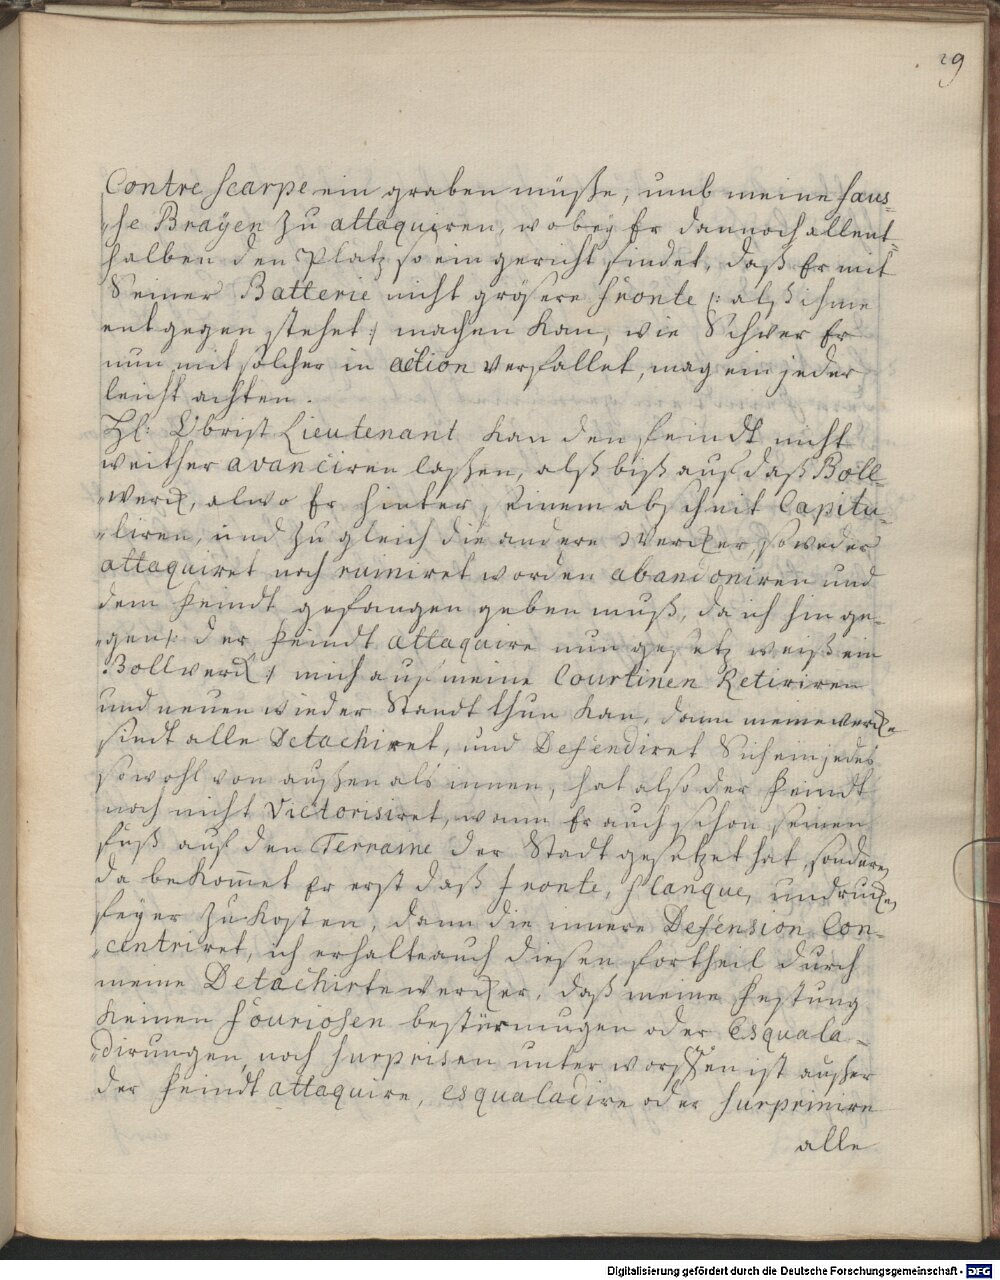 29
Contre Scarpe ein graben müße, umb meine Faus-
„se Brayen zu attaquiren, wobeÿ Er dannoch allent-
halben den Platz so ein gericht findet, daß Er mit
Seiner Batterie nicht grösere Fronte /: alß ihme
entgegen stehet :/ machen kan, wie Schwer Er
nun mit solcher in action verfallet, mag ein jeder
leicht achten.
Hl: Obrist Lieutenant kan den Feindt nicht
weither avanciren laßen, alß biß auf daß Boll-
„werck, alwo Er hinter einem abschnit Capitu-
„liren, und zu gleich die andere Wercker, so weder
attaquiret noch ruiniret worden abandoniren und
dem Feindt gefangen geben muß, da ich hin ge-
„gen /: der Feindt attaquire nun gesetz weiß ein
Bollwerck :/ mich auf meine Courtinen Retiriren
und neuen wieder Standt thun kan, dann meine wercke
sindt alle Detachiret, und Defendiret Sich ein jedes
so wohl von außen als innen, hat also der Feindt
noch nicht Victorisiret, wann Er auch schon seinen
fuß auf den Terraine der Stadt gesetzet hat, sonderen
da bekom̄et Er erst daß Fronte, Flanque, und rucken
feyer zu kosten, dann die innere Defension Con-
„centriret, ich erhalte auch diesen fortheil durch
meine Detachirte wercker, daß meine Festung
keinen Fouriosen bestürmugen oder Esquala-
„dirungen, noch Surprisen unterworffen ist außer
der Feindt attaquire, esqualadire oder Surprinire
alle
Digitalisierung gefördert durch die Deutsche Forschungsgemeinschaft - DFG